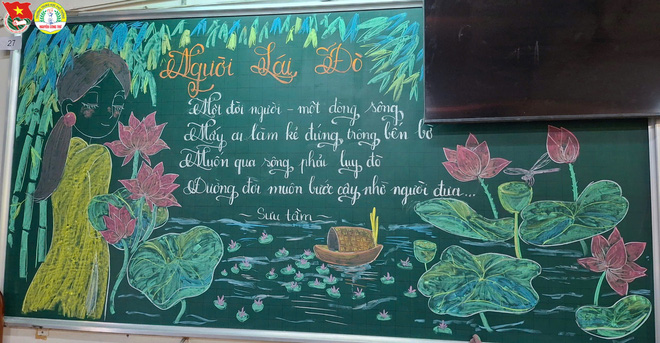 27
Người Lái Đò
Một đời người - một dòng sông
Mấy ai làm kẻ đứng trông bến bờ
Muốn qua sông phải luỵ đò
Đường đời muôn bước cậy nhờ người đưa...
Sưu tầm